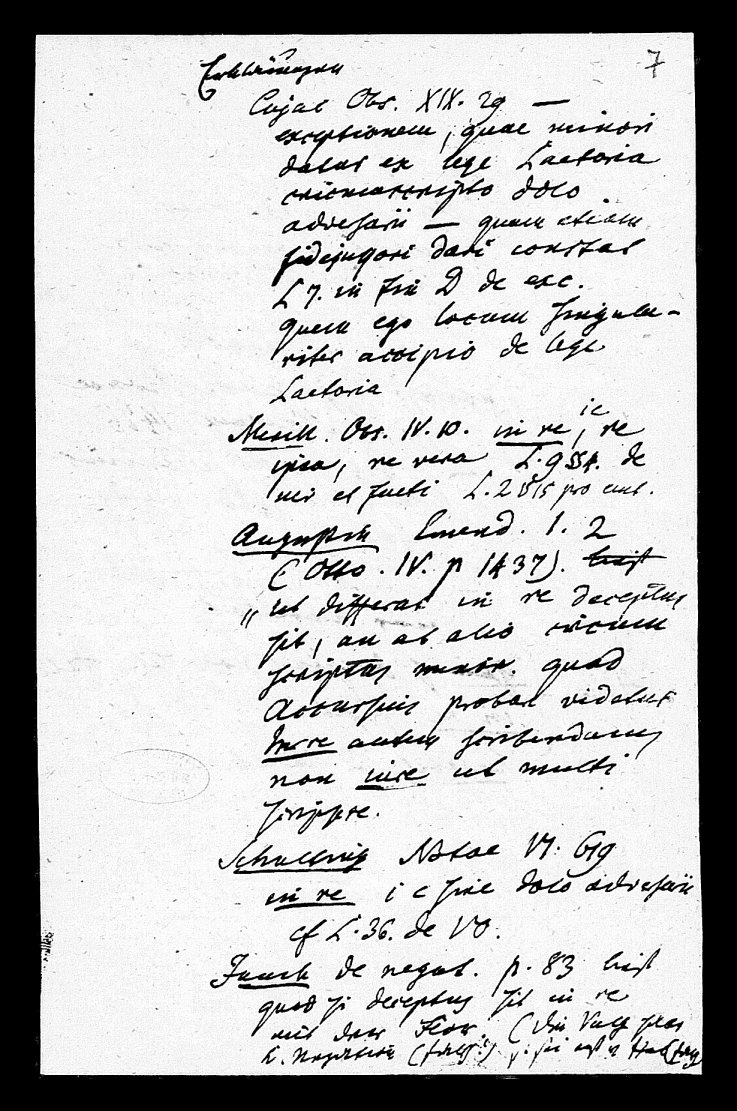 7
Erklärungen
Cujac Obs. XIX. 29 —
exceptionem, quae minori
datur ex lege Laetoria
circumscripto dolo
adversarii — quam etiam
fidejussori dari constat
L 7. in fin D de exc.
quem ego locum singula-
riter accipio de lege
Laetoria
Merill. Obs. IV. 10. in re, ic re
ipsa, re vera L. 9 § 4. de
iur et facti L. 2 § 15 pro emt.
Augustin Emend. 1. 2
(Otto. IV. p 1437). liest
„ut differat in re deceptus
sit, an ab alio circum
scriptus minor. quod
Accursius probat videtur
In re autem scribendum,
non iure ut multi
scripsere.
Schulting Notae VI. 619
in re i c sine dolo adversarii
cf L. 36. de VO.
de negat. p. 83 liest
quod si deceptus sit in re
mit der Flor. (die Vulg